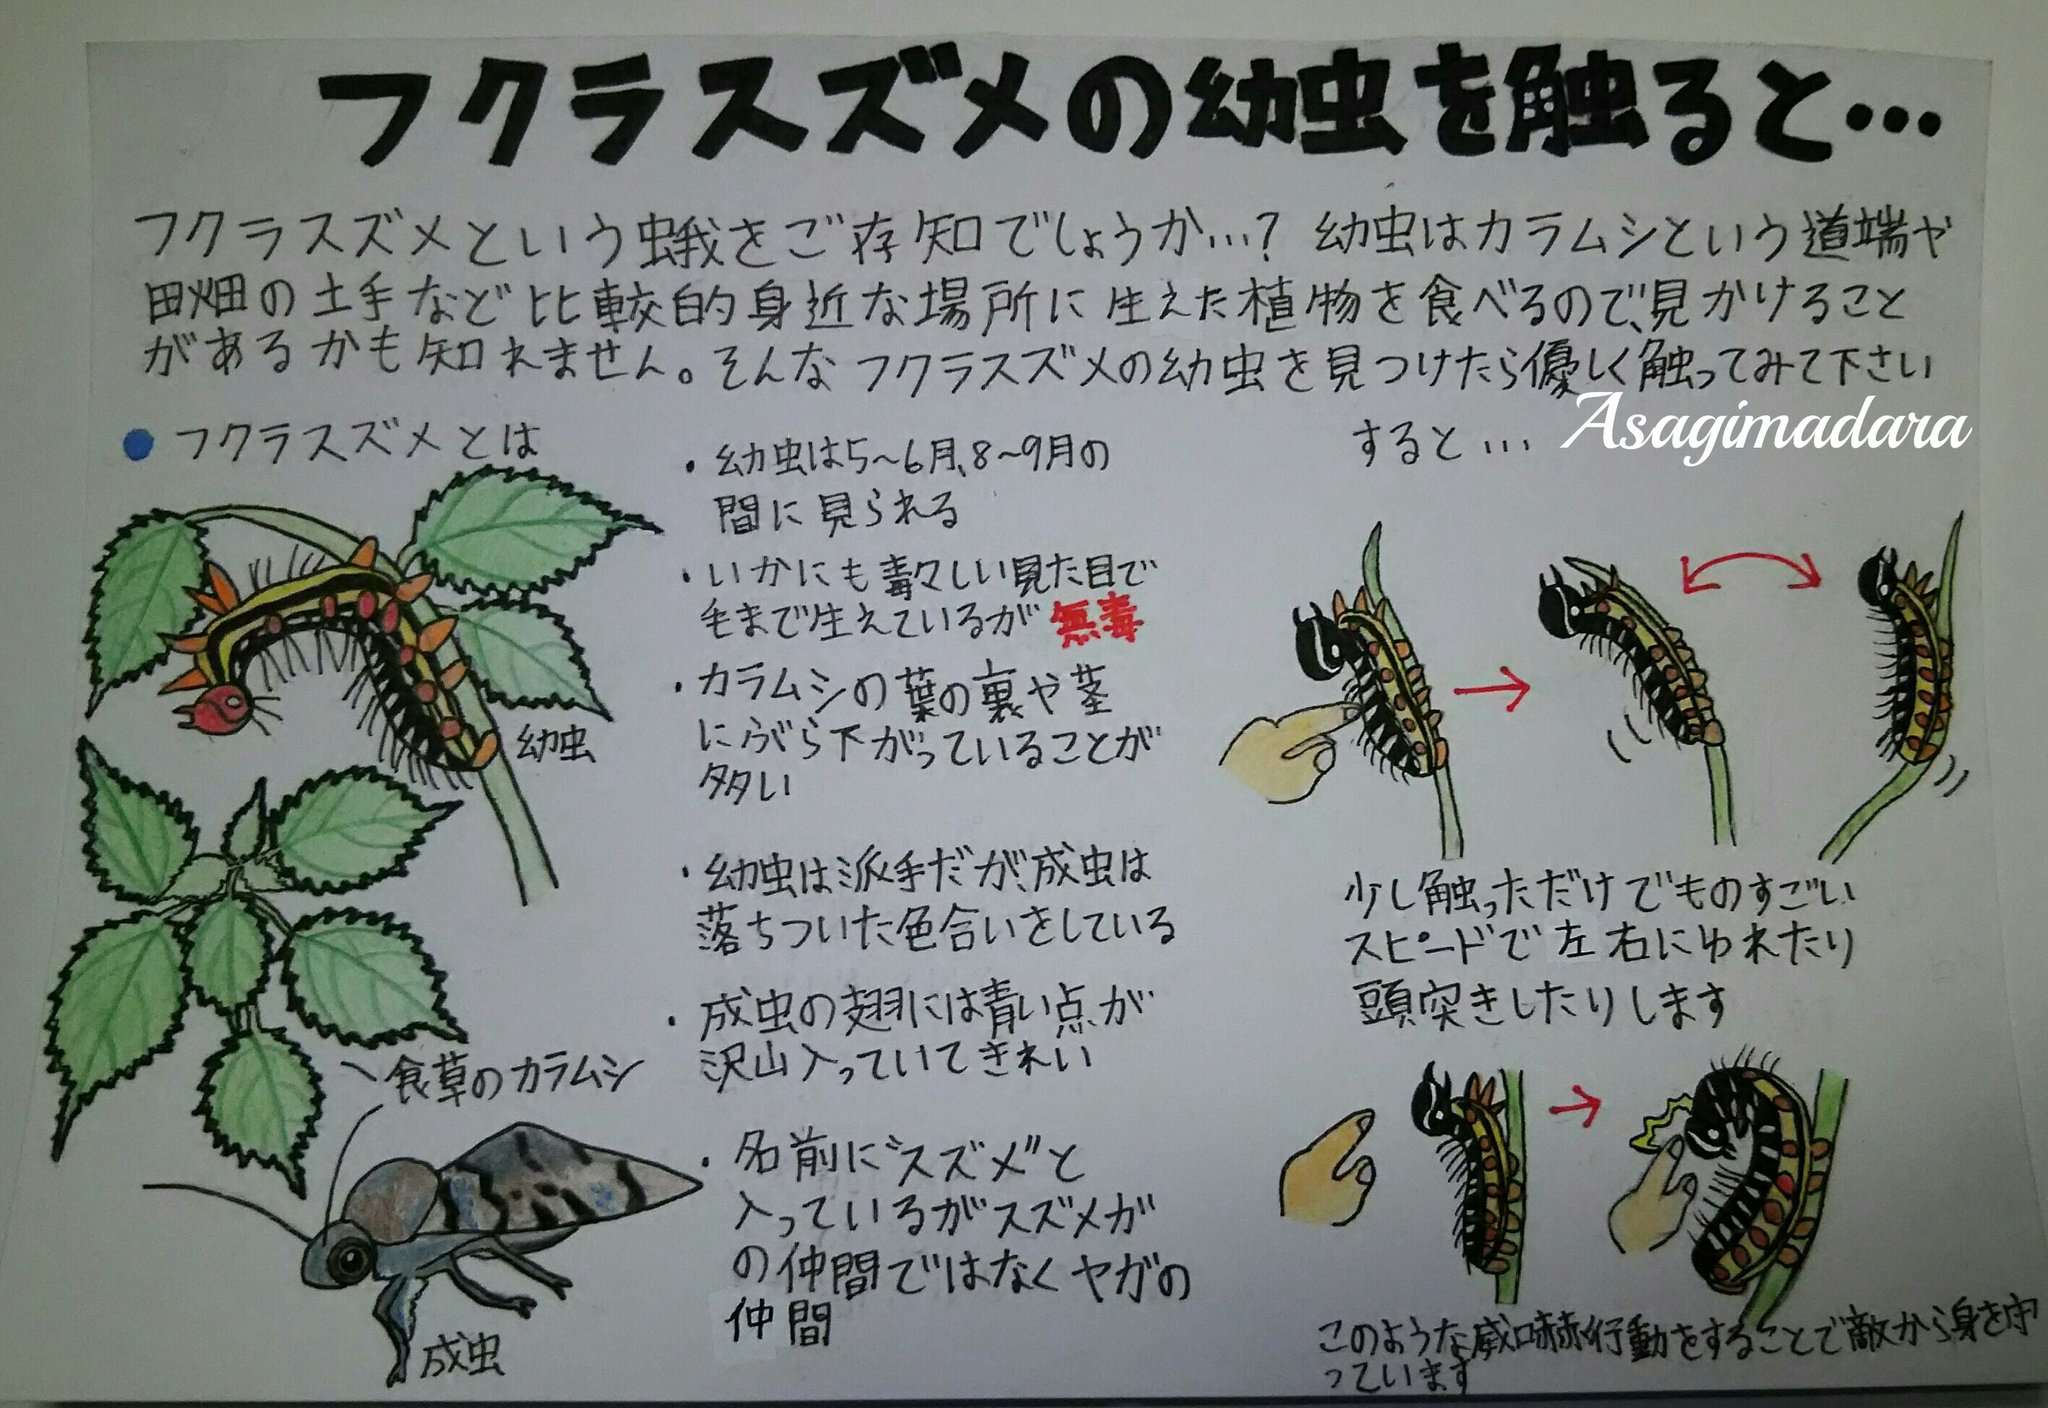 フクラスズメの幼虫を触ると…
フクラスズメという蛾をご存知でしょうか…? 幼虫はカラムシという道端や
田畑の土手など比較的身近な場所に生えた植物を食べるので、見かけること
があるかも知れません。そんなフクラスズメの幼虫を見つけたら優しく触ってみて下さい
Asagimadara
フクラスズメとは
幼虫
食草のカラムシ
成虫
・幼虫は5~6月、8~9月の
間に見られる
・いかにも毒々しい見た目で
毛まで生えているが無毒
・カラムシの葉の裏や茎
にぶら下がっていることが
多い
・幼虫は派手だが、成虫は
落ちついた色合いをしている
・成虫の翅には青い点が
沢山入っていてきれい
・名前に"スズメ"と
入っているがスズメガ
の仲間ではなくヤガの
仲間
すると…
少し触っただけでものすごい
スピードで左右にゆれたり
頭突きしたりします
このような威嚇行動をすることで敵から身を守
っています